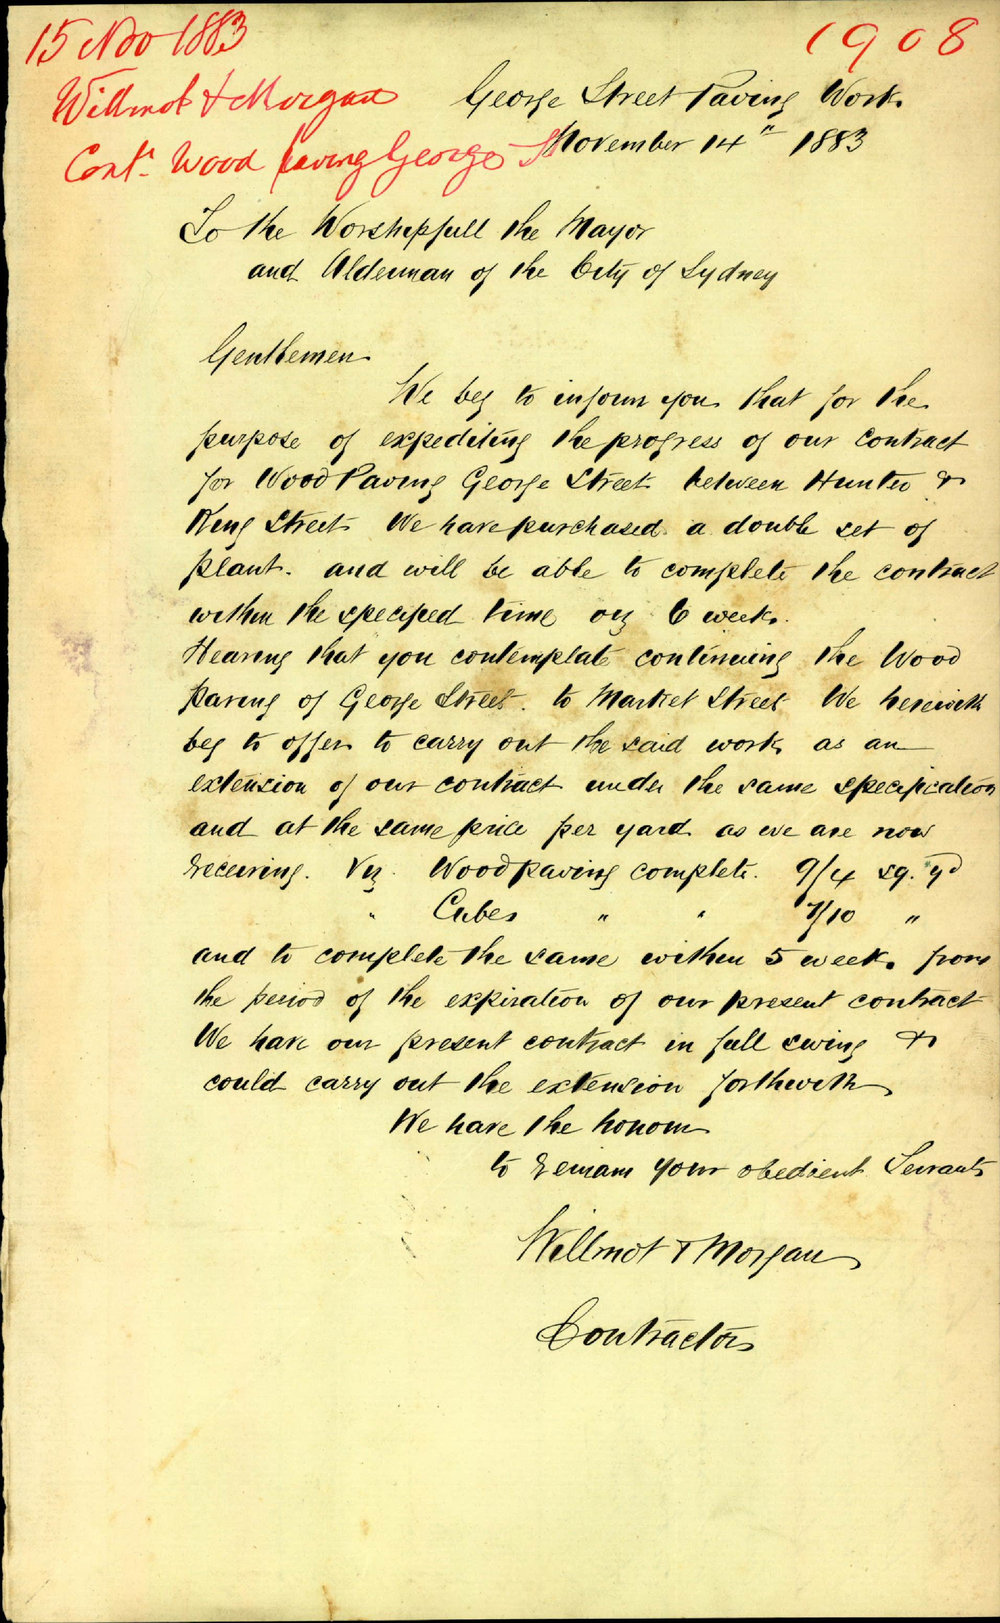 15 Nov 1883
1908
Willmot & Morgan
Cont. Wood paving George St
George Street Paving Work
November 14" 1883
To the Worshipfull the Mayor
and Alderman of the City of Sydney
Gentlemen
We beg to inform you that for the
purpose of expediting the progress of our contract
for Wood Paving George Street between Hunter &
King Street We have purchased a double set of
plant. and will be able to complete the contract
within the specified time viz 6 weeks.
Hearing that you contemplate continuing the Wood
Paving of George Street. to Market Street We herewith
beg to offer to carry out the said work as an
extension of our contract under the same specification
and at the same price per yard as we are now
receiving. Viz. Wood paving complete. 9/4 sq. yd
" Cubes " " 7/10 "
and to complete the same within 5 weeks from
the period of the expiration of our present contract
We have our present contract in full swing &
could carry out the extension forthwith
We have the honour
to remain your obedient Servants
Willmot & Morgan
Contractors